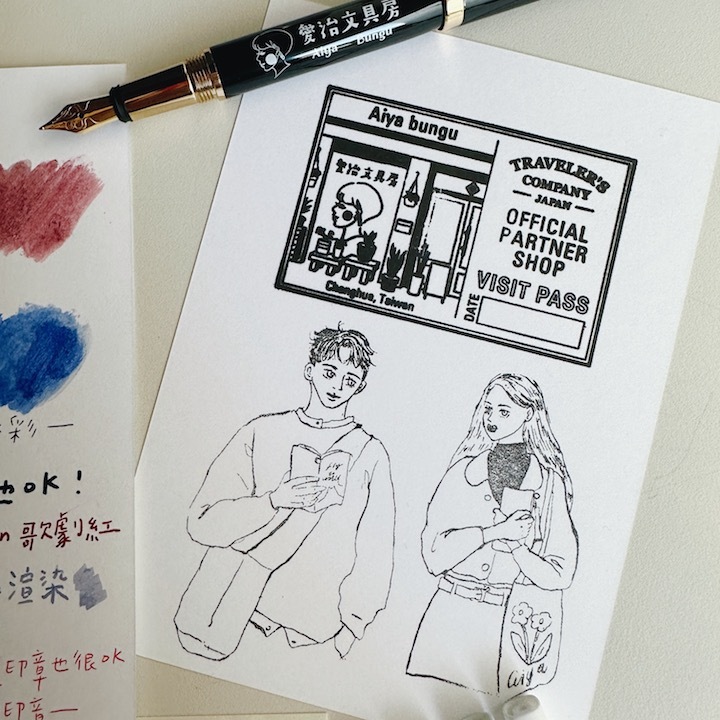 愛治文具房
Aiya Bungu
Aiya bungu
愛治文具房
Changhua, Taiwan
TRAVELER'S
COMPANY
JAPAN
OFFICIAL
PARTNER
SHOP
VISIT PASS
DATE
彩一
也OK!
n 歌劇紅
渲染
印章也很OK
印音一
aiya